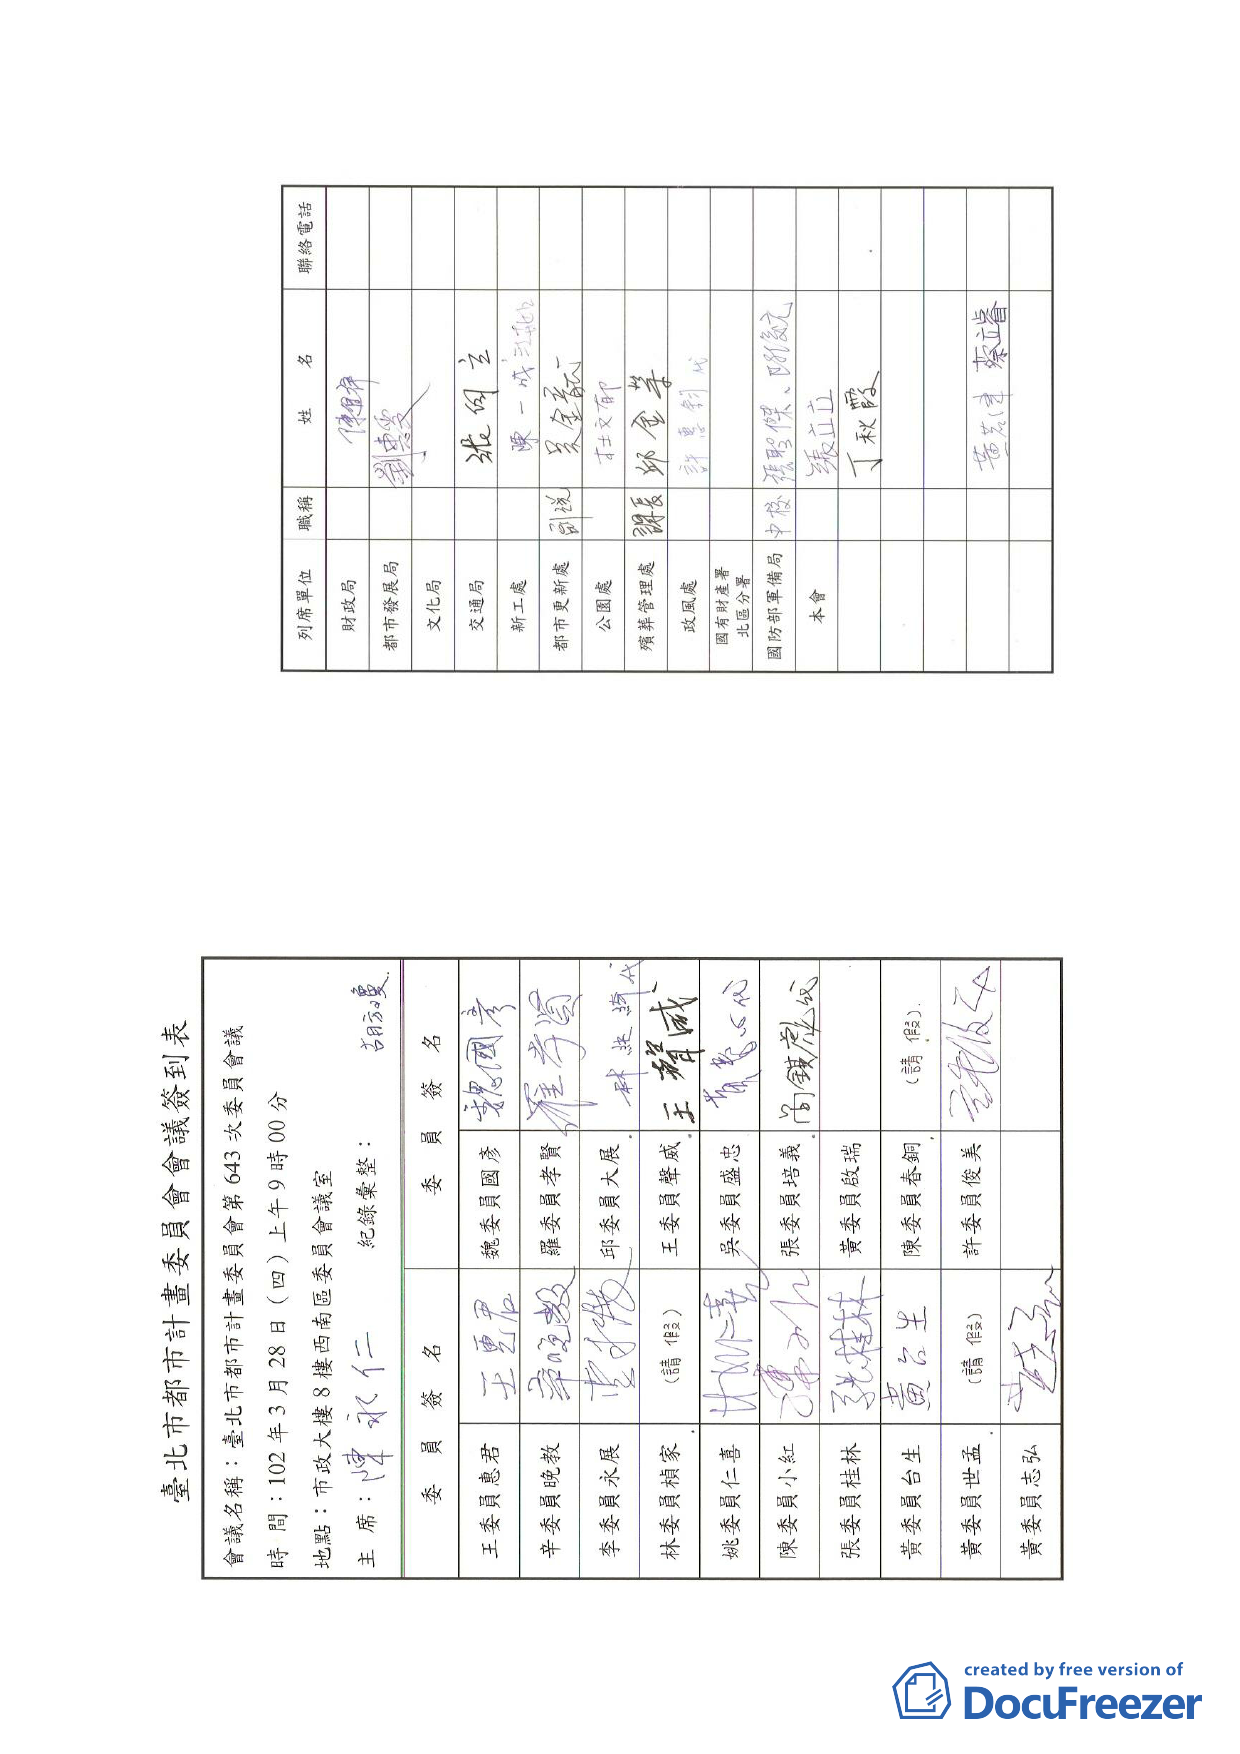 臺北市都市計畫委員會會議簽到表
會議名稱：臺北市都市計畫委員會第 643 次委員會會議
時 間：102 年 3 月 28 日（四）上午 9 時 00 分
地點：市政大樓 8 樓西南區委員會會議室
主 席：陳永仁 紀錄彙整：胡方瓊
委 員 簽 名 委 員 簽 名
王委員惠君 王惠君 魏委員國彥 魏國彥
辛委員晚教 辛晚教 羅委員孝賢 羅孝賢
李委員永展 李永展 邱委員大展
林委員楨家 （請 假） 王委員聲威 王聲威
姚委員仁喜 姚仁喜 吳委員盛忠
陳委員小紅 陳小紅 張委員培義
張委員桂林 張桂林 黃委員啟瑞
黃委員台生 黃台生 陳委員春銅 （請 假）
黃委員世孟 （請 假） 許委員俊美 許俊美
黃委員志弘
列席單位 職稱 姓 名 聯絡電話
財政局
都市發展局 劉惠雯
文化局
交通局
新工處 陳一成
都市更新處
公園處 杜文郁
殯葬管理處 課長 邱金華
政風處
國有財產署
北區分署
國防部軍備局 中校
本會 張立立
丁秋霞
蔡立睿
created by free version of
DocuFreezer